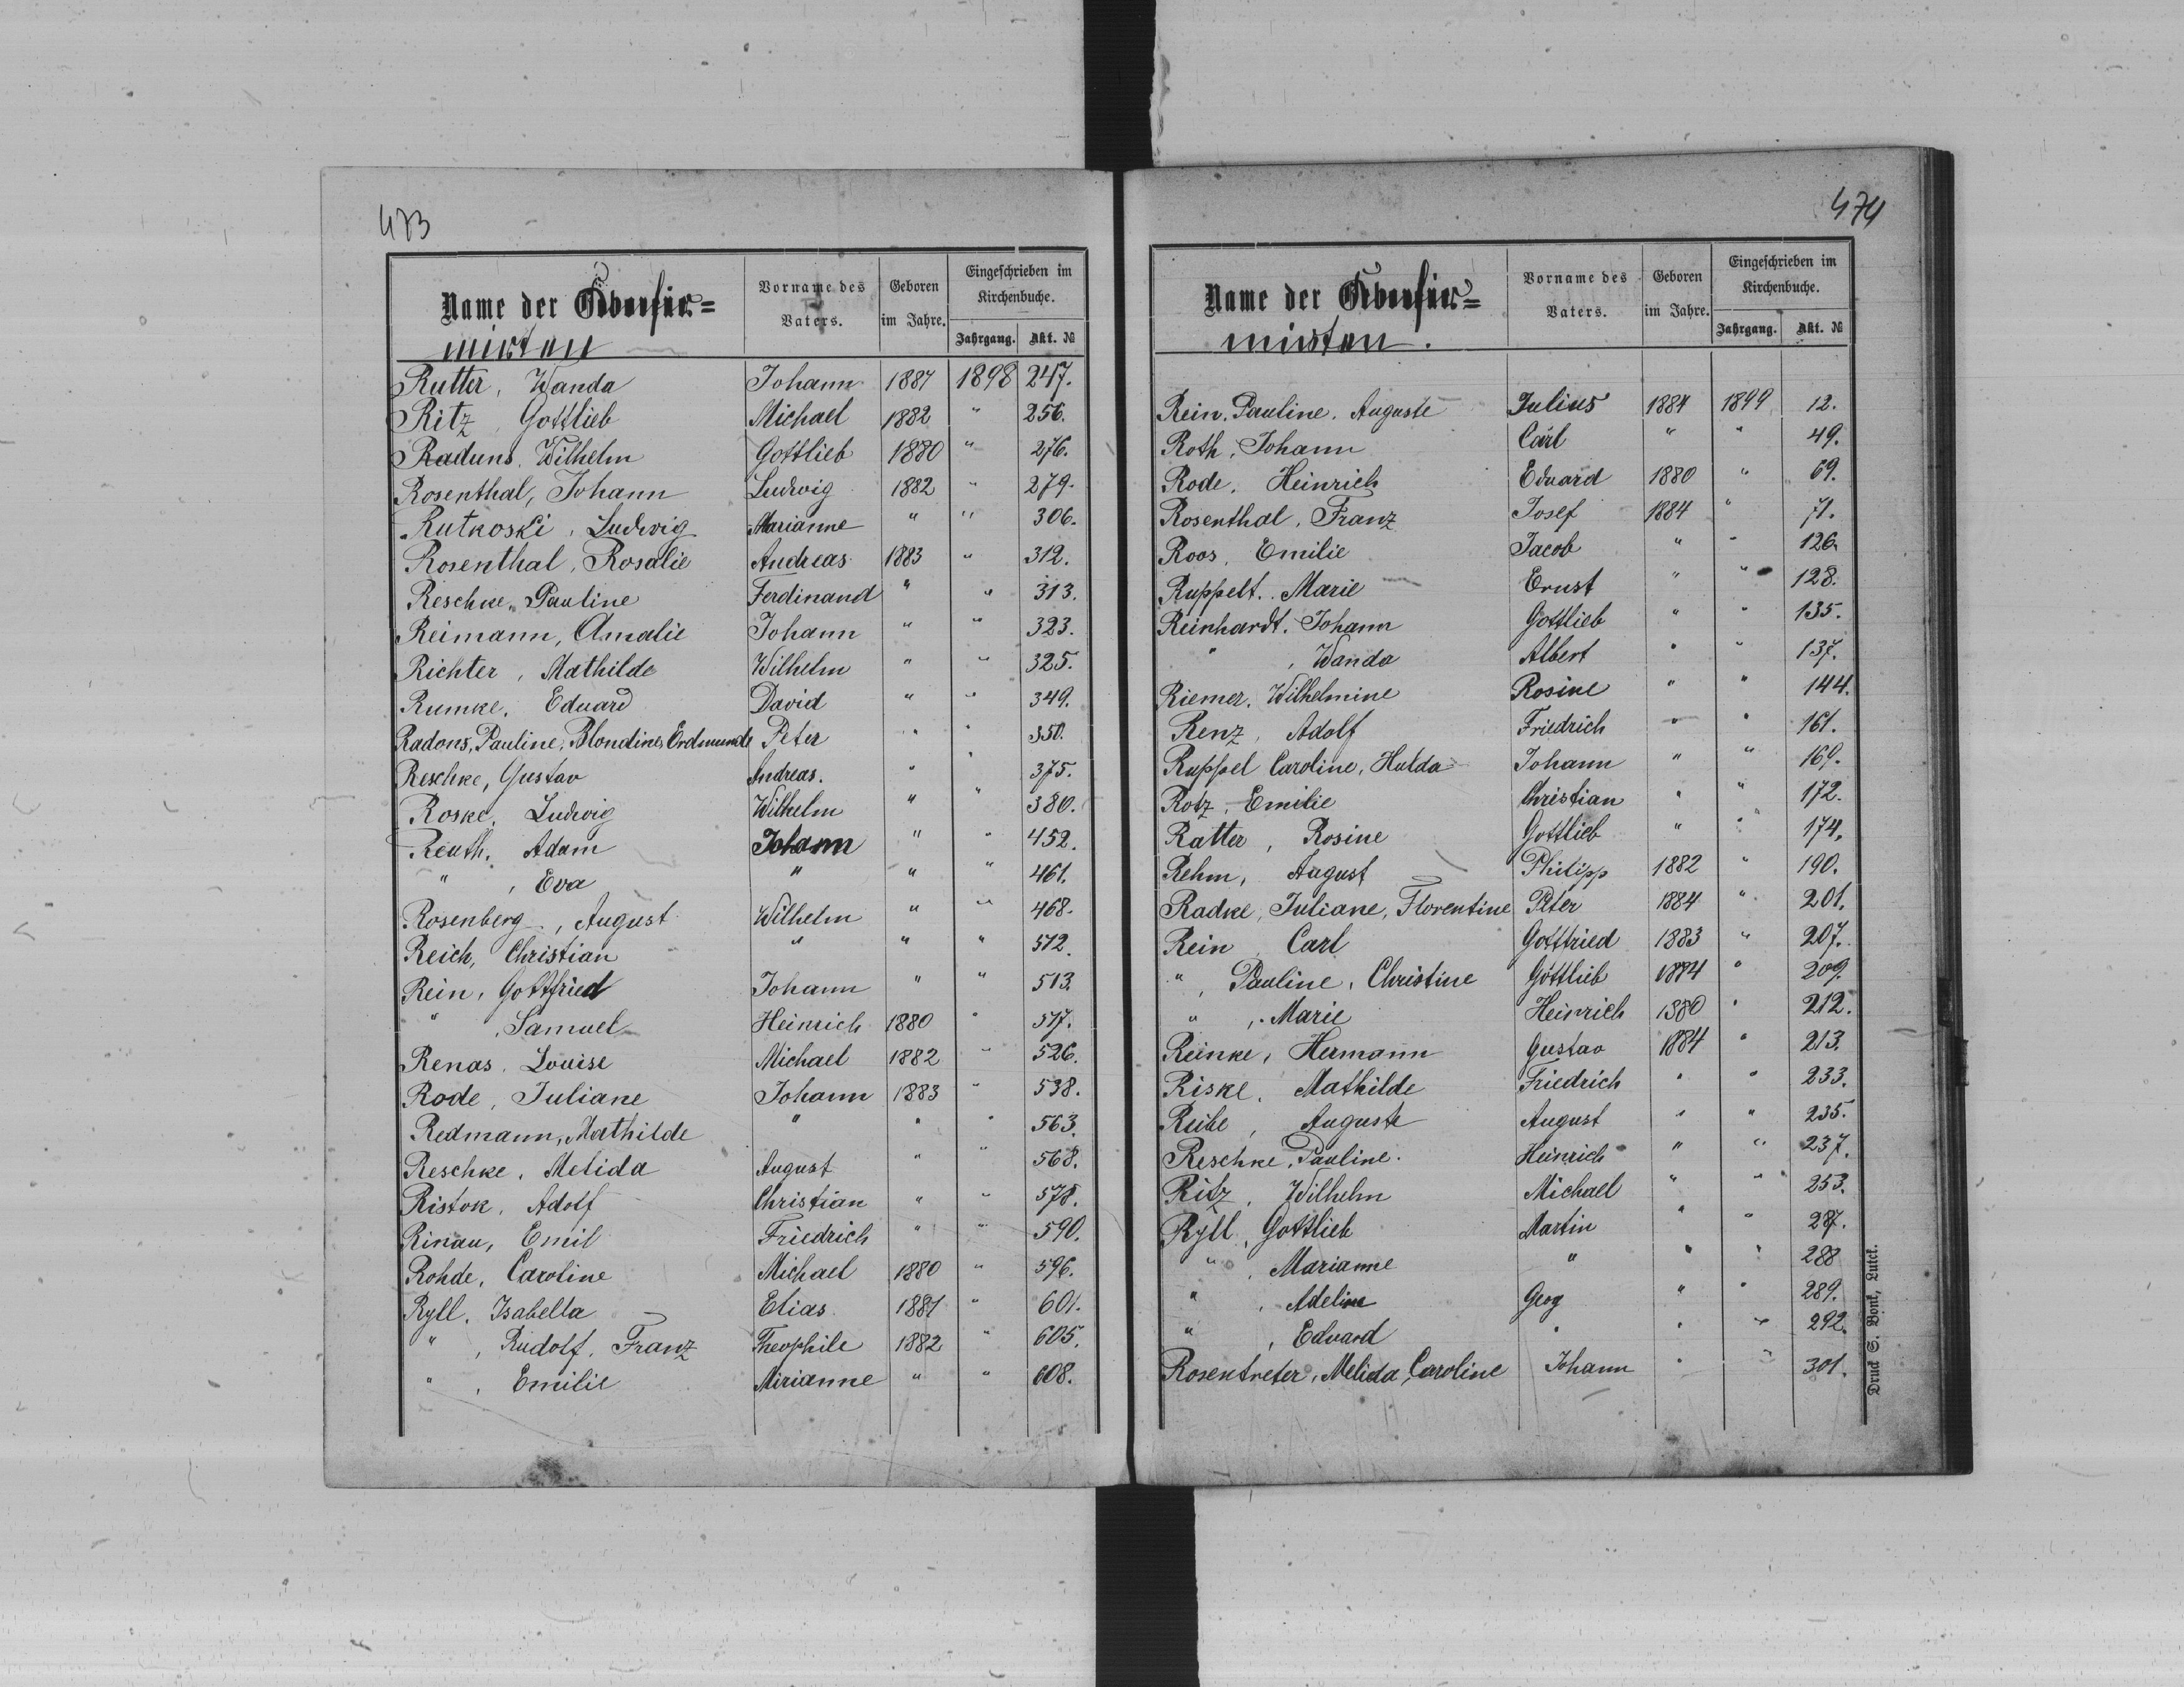 473
Name der Confir=
mirten
Vorname des Vaters.
Geboren im Jahre.
Eingeschrieben im Kirchenbuche.
Jahrgang. Akt. №
Rutter, Wanda Johann 1884 1898 247.
Ritz, Gottlieb Michael 1882 " 256.
Raduns, Wilhelm Gottlieb 1880 " 276.
Rosenthal, Johann Ludwig 1882 " 279.
Rutkoski, Ludwig Marianne " " 306.
Rosenthal, Rosalie Andreas 1883 " 312.
Reschke, Pauline Ferdinand " " 313.
Reimann, Amalie Johann " " 323.
Richter, Mathilde Wilhelm " " 325.
Rumke, Eduard David " " 349.
Radons, Pauline, Blondine, Erdmunde Peter " " 350.
Reschke, Gustav Andreas. " " 375.
Roske, Ludwig Wilhelm " " 380.
Reuth, Adam Johann " " 452.
" , Eva " " " 461.
Rosenberg, August Wilhelm " " 468.
Reich, Christian " " " 512.
Rein, Gottfried Johann " " 513.
" , Samuel Heinrich 1880 " 517.
Renas, Louise Michael 1882 " 526.
Rode, Juliane Johann 1883 " 538.
Redmann, Mathilde " " " 563.
Reschke, Melida August " " 568.
Ristok, Adolf Christian " " 578.
Rinau, Emil Friedrich " " 590.
Rohde, Caroline Michael 1880 " 596.
Ryll, Isabella Elias 1881 " 601.
" , Rudolf, Franz Theophile 1882 " 605.
" , Emilie Mirianne " " 608.
474
Name der Confir=
mirten.
Vorname des Vaters.
Geboren im Jahre.
Eingeschrieben im Kirchenbuche.
Jahrgang. Akt. №
Rein, Pauline, Auguste Julius 1884 1899 12.
Roth, Johann Carl " " 49.
Rode, Heinrich Eduard 1880 " 69.
Rosenthal, Franz Josef 1884 " 71.
Roos, Emilie Jacob " " 126.
Ruppelt, Marie Ernst " " 128.
Reinhardt, Johann Gottlieb " " 135.
" , Wanda Albert " " 137.
Riemer, Wilhelmine Rosine " " 144.
Renz, Adolf Friedrich " " 161.
Ruppel Caroline, Hulda Johann " " 169.
Rotz, Emilie Christian " " 172.
Ratter, Rosine Gottlieb " " 174.
Rehm, August Philipp 1882 " 190.
Radke, Juliane, Florentine Peter 1884 " 201.
Rein, Carl Gottfried 1883 " 207.
" , Pauline, Christine Gottlieb 1884 " 209.
" , Marie Heinrich 1880 " 212.
Reinke, Hermann Gustav 1884 " 213.
Riske, Mathilde Friedrich " " 233.
Reibe, Auguste August " " 235.
Reschke, Pauline. Heinrich " " 237.
Ritz, Wilhelm Michael " " 253.
Ryll, Gottlieb Martin " " 287.
" , Marianne " " " 288
" , Adeline Geog " " 289.
" , Eduard " " " 292.
Rosentreter, Melida, Caroline Johann " " 301.
Druck S. Bonk, Lutck.